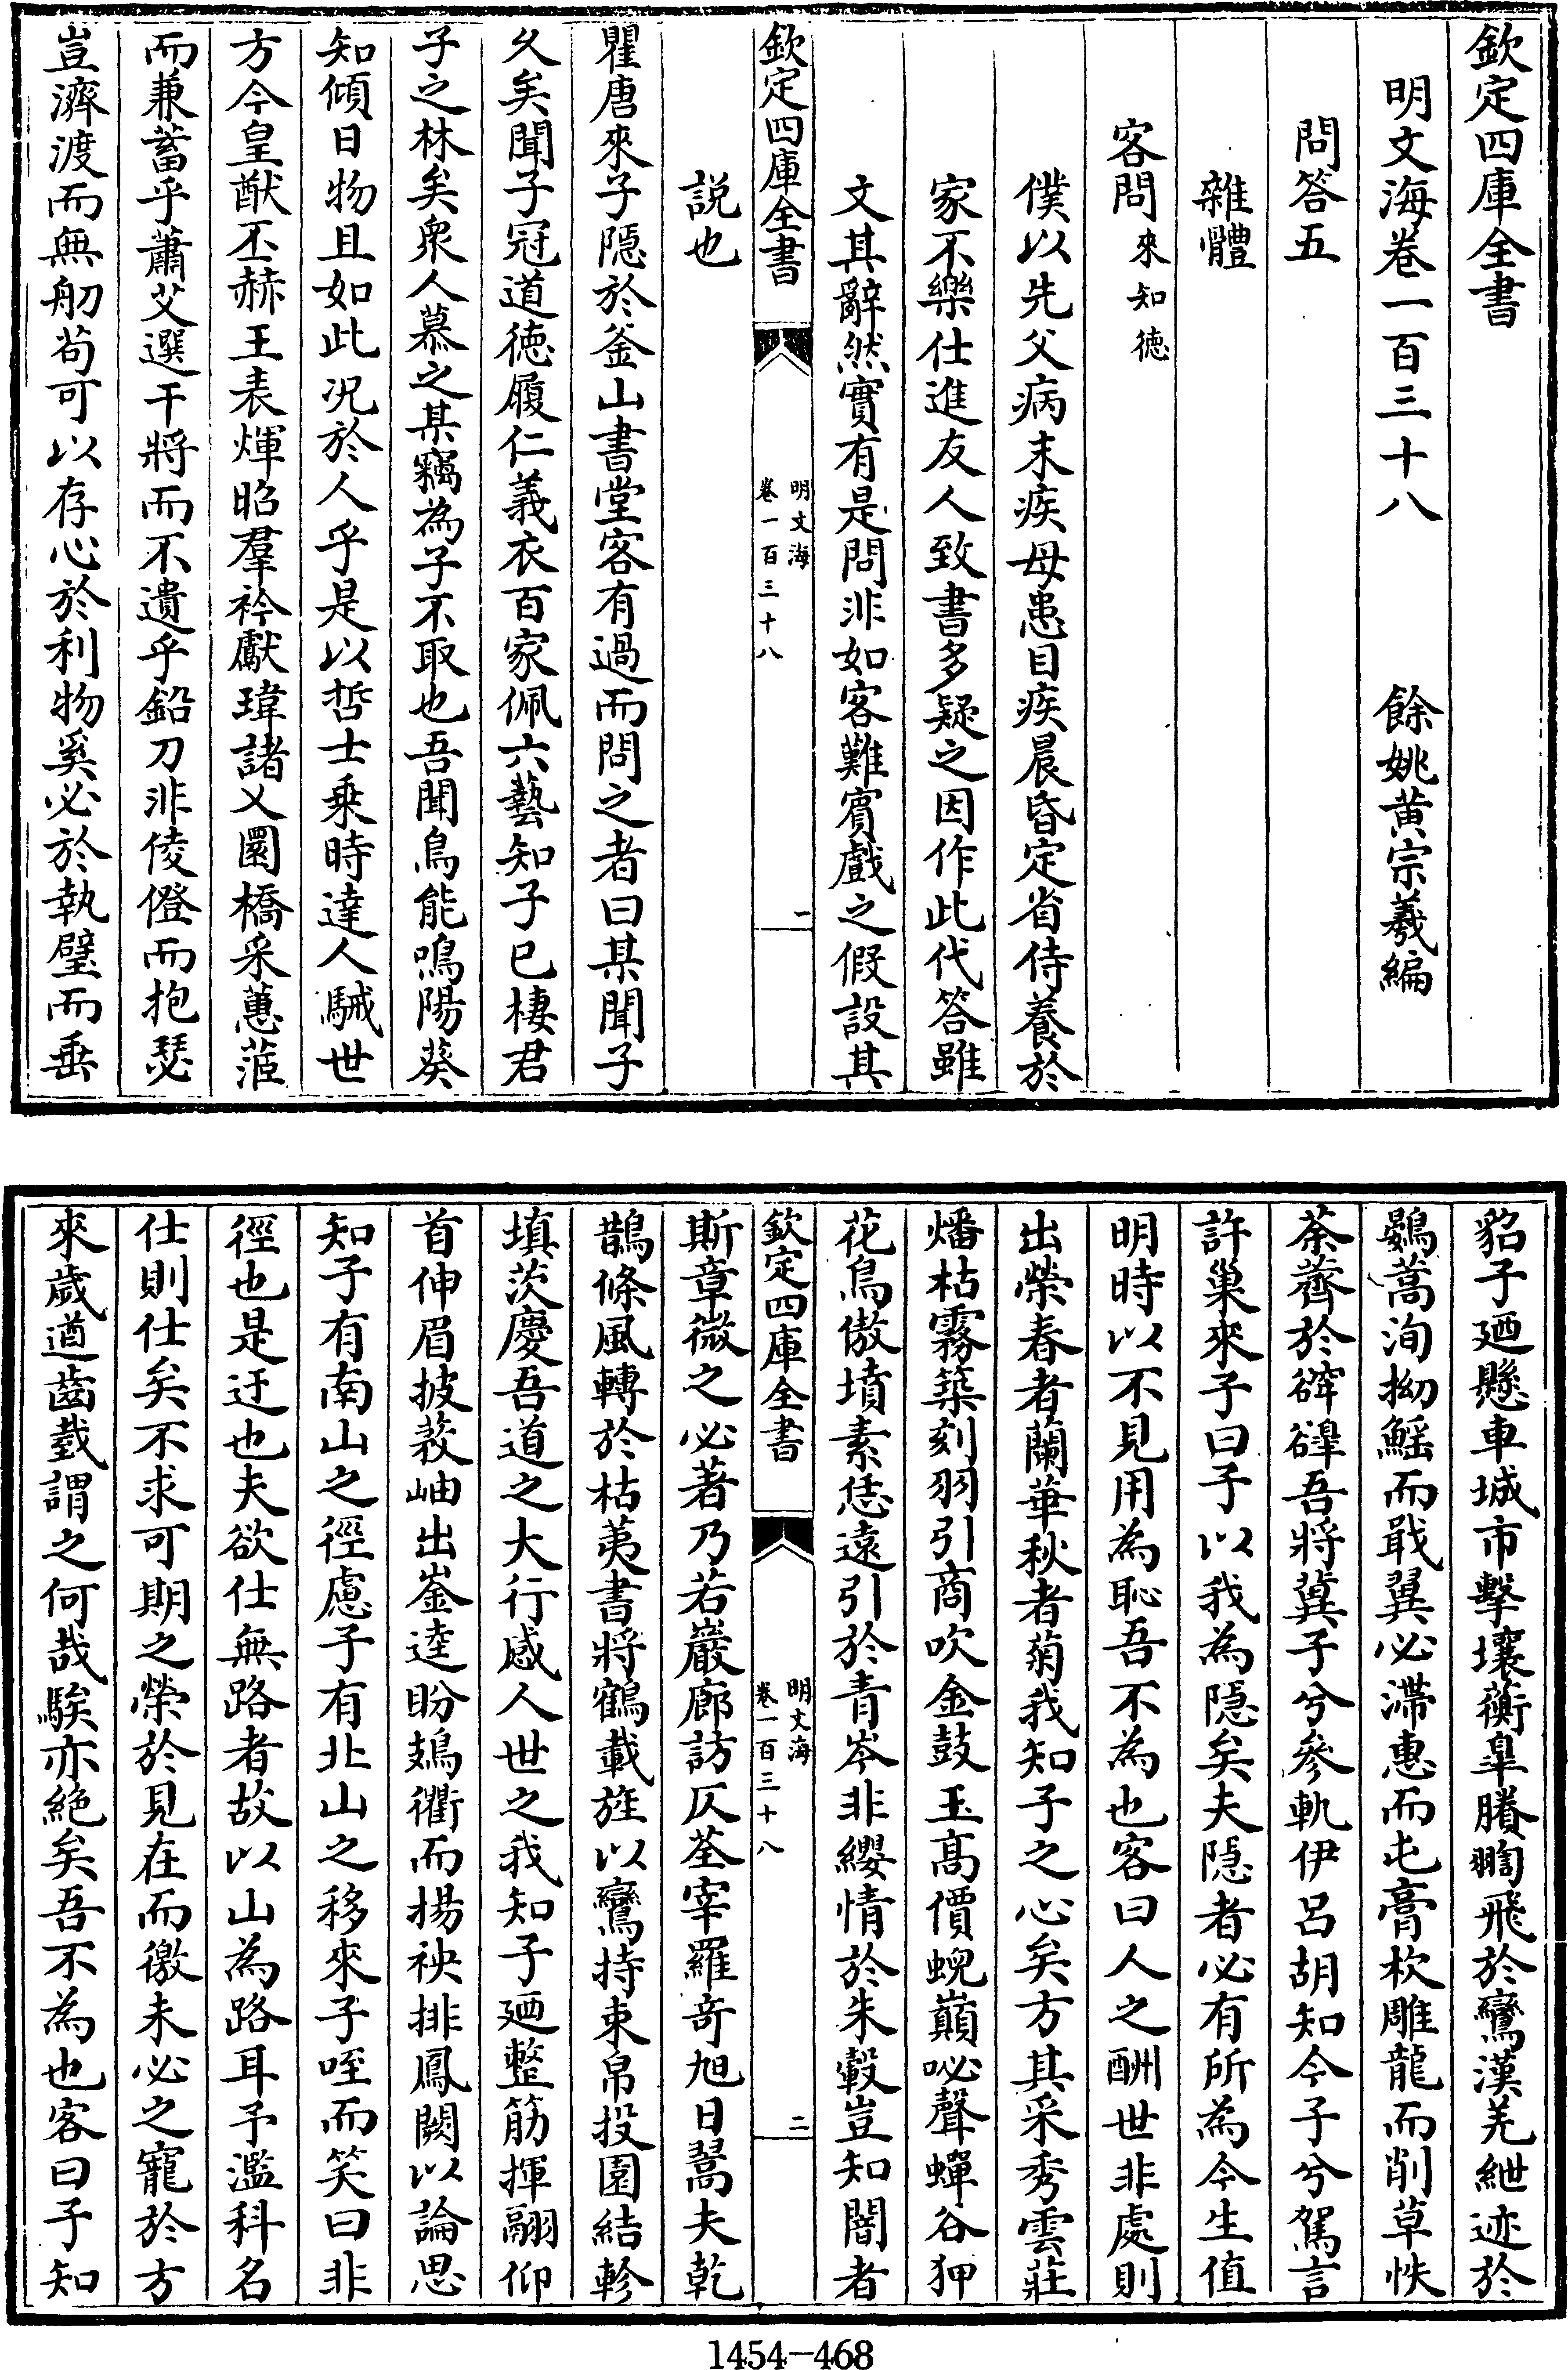 欽定四庫全書
明文海卷一百三十八　餘姚黄宗羲編
問答五
雜體
客問來知德
僕以先父病末疾母患目疾晨昏定省侍養於
家不樂仕進友人致書多疑之因作此代答雖
文其辭然實有是問非如客難賓戲之假設其
欽定四庫全書
明文海
卷一百三十八
一
説也
瞿唐來子隱於釜山書堂客有過而問之者曰某聞子
久矣聞子冠道徳履仁義衣百家佩六藝知子已棲君
子之林矣衆人慕之某竊為子不取也吾聞鳥能鳴陽葵
知傾日物且如此况於人乎是以哲士乗時達人駴世
方今皇猷丕赫王表煇昭羣衿獻瑋諸乂圜橋采蕙茝
而兼蓄乎蕭艾選干將而不遺乎鉛刀非倰僜而抱瑟
豈濟渡而無舠苟可以存心於利物奚必於執璧而垂
貂子廼懸車城市擊壤蘅臯賸鵰飛於鸞漢羌紲迹於
鷃蒿洵拗鰩而戢翼必滯惠而屯膏杴雕龍而削草帙
荼薺於䃁䃁吾將冀子兮參軌伊呂胡知今子兮駕言
許巢來子曰子以我為隠矣夫隠者必有所為今生值
明時以不見用為恥吾不為也客曰人之酬世非處則
出榮春者蘭華秋者菊我知子之心矣方其采秀雲莊
燔枯霧築刻羽引商吹金鼓玉高價蜺巔咇聲蟬谷狎
花鳥傲墳素恁遠引於青岑非纓情於朱轂豈知闇者
欽定四庫全書
明文海
卷一百三十八
二
斯章微之必著乃若巖廊訪仄荃宰羅奇旭日翯夫乾
鵲條風轉於枯荑書將鶴載旌以鸞持束帛投園結軫
填茨慶吾道之大行感人世之我知子廼整筋揮翮仰
首伸眉披薐岫出崟逵盼鳷衢而揚袂排鳳闕以論思
知子有南山之徑慮子有北山之移來子咥而笑曰非
徑也是迂也夫欲仕無路者故以山為路耳予濫科名
仕則仕矣不求可期之榮於見在而徼未必之寵於方
來歲遒齒臷謂之何哉騃亦絶矣吾不為也客曰子知
1454-468